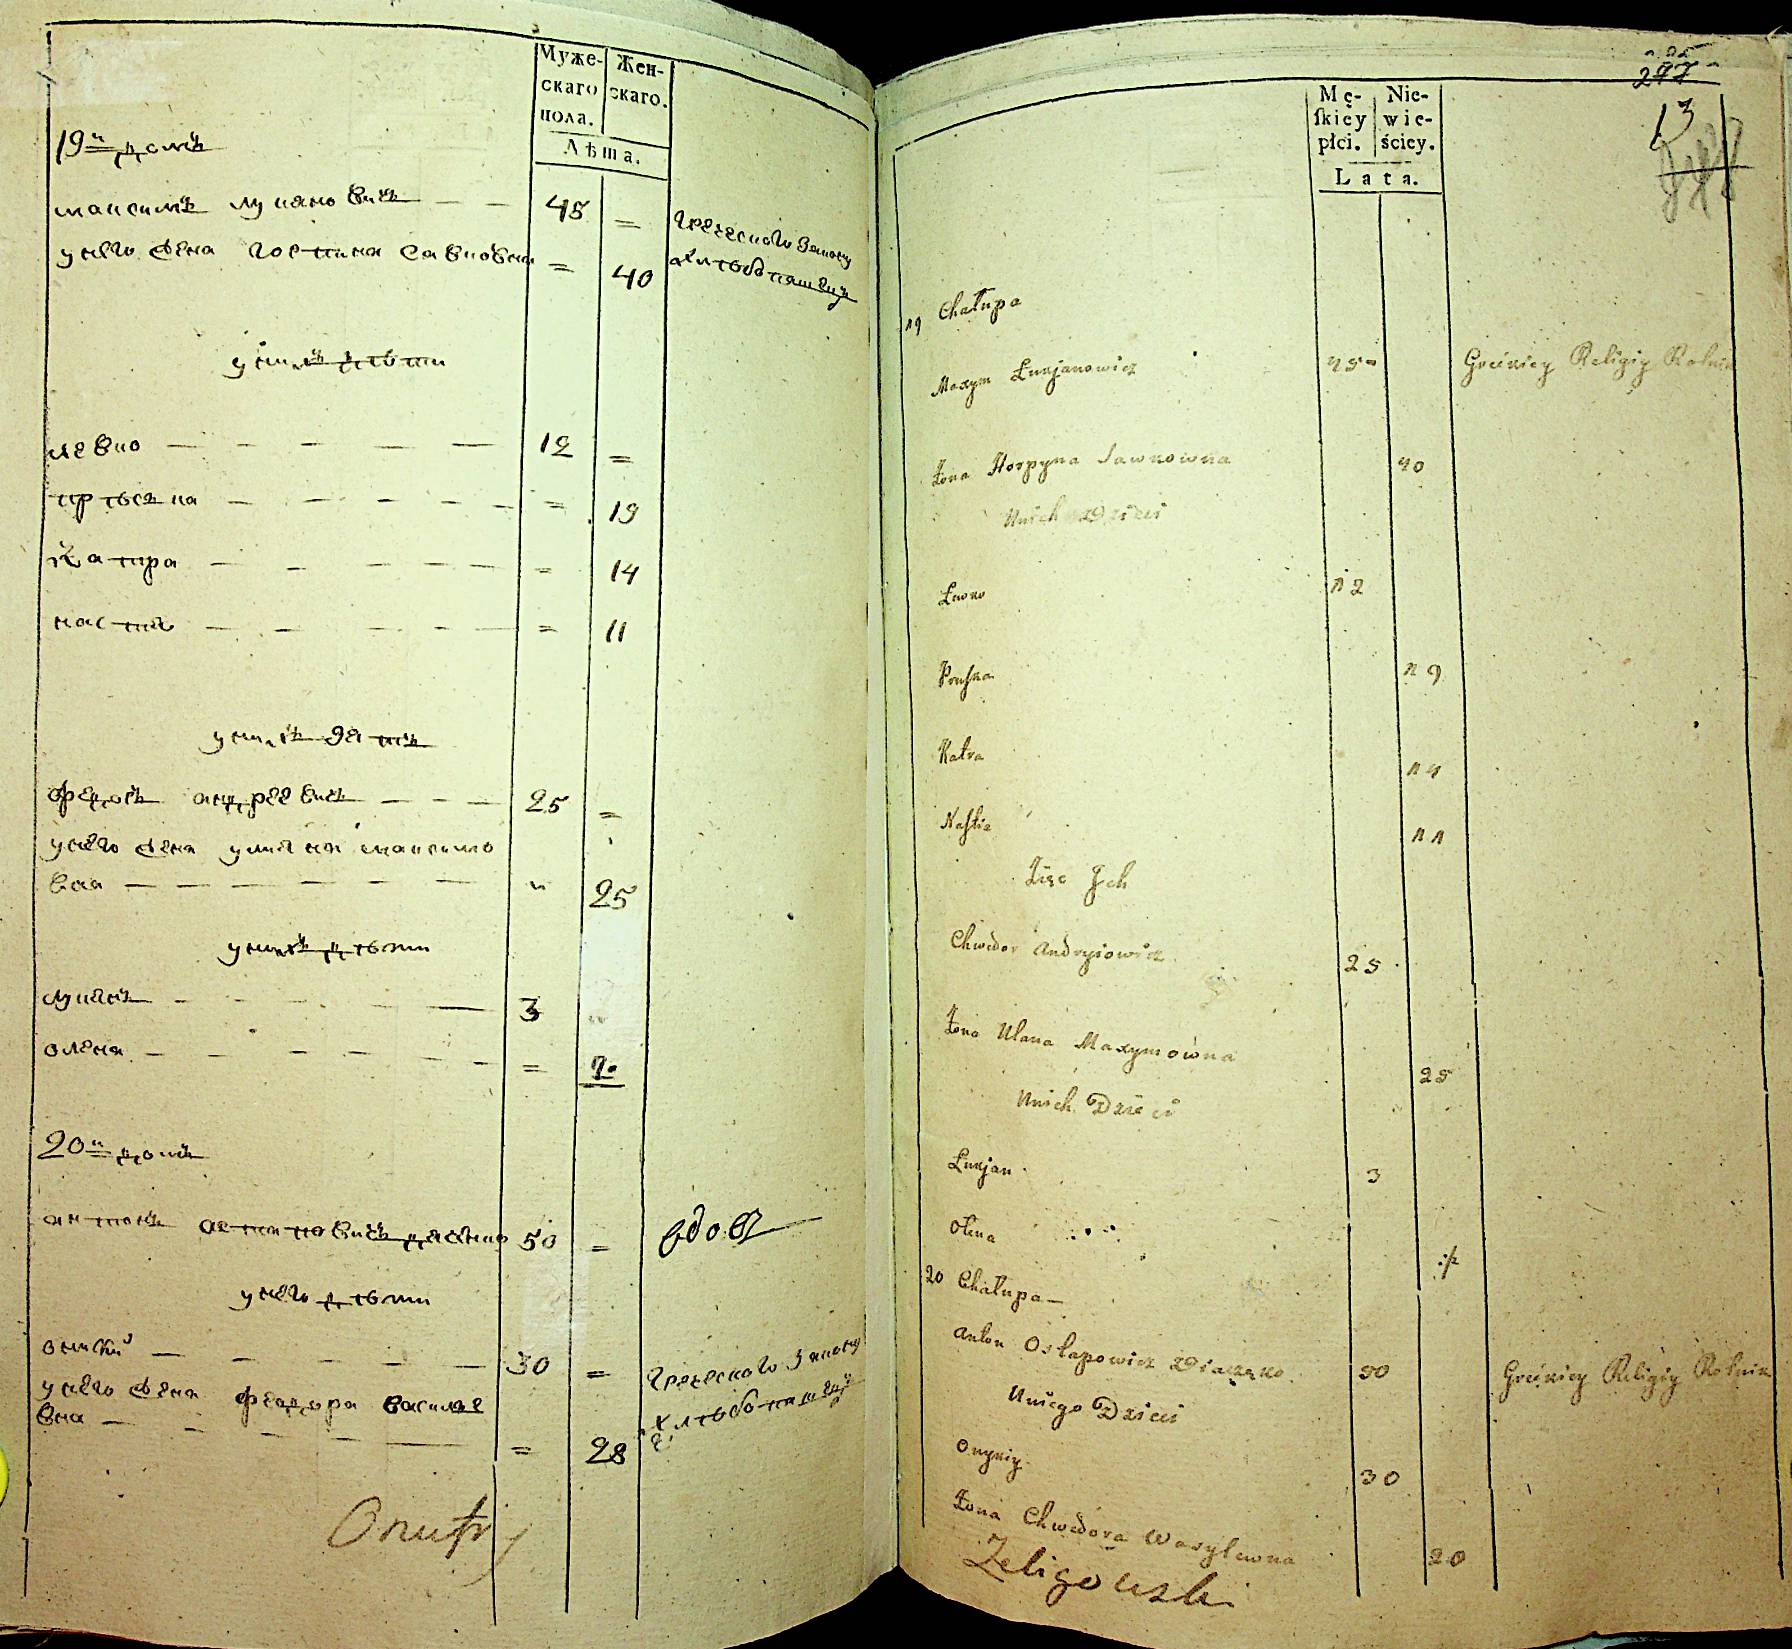 Муже-
скаго
пола.
Жен-
скаго.
Лѣта.
19й домъ
максимъ лукяновичъ 45 =
унего жена горпина савковна = 40
греческого закону
хлѣбопашецъ
унихъ дѣти
левко 12 =
прѣська = 19
Катра = 14
настя = 11
унихъ зять
федоръ андреевичъ 25 =
унего жена уляна максимо
вна " 25
унихъ дѣти
лукянъ 3
олена = ½
20й домъ
антонъ остаповичъ 50 =
вдовъ
унего дѣти
онискій 30 =
греческого закону
хлѣбопашецъ
унего жена федора василе
вна = 28
Onufry
Mę-
skiéy
płci.
Nie-
wie-
ściey.
Lata.
297
13
19 Chałupa
Maxym Łukjanowicz 45 Gréckiey Religiy Rolnik
Żona Horpyna Sawkowna 40
Unich Dzieci
Lewko 12
Pruska 19
Katra 14
Nastia 11
Zięć Jch
Chwedor Andryiowicz 25
Żona Ulana Maxymowna 25
Unich Dzieci
Łukjan 3
Olena ½
20 Chałupa
Anton Ostapowicz 50 Gréckiey Religiy Rolnik
Uniego Dzieci
30
Żona Chwedora Wasylewna 20
Zeligowski